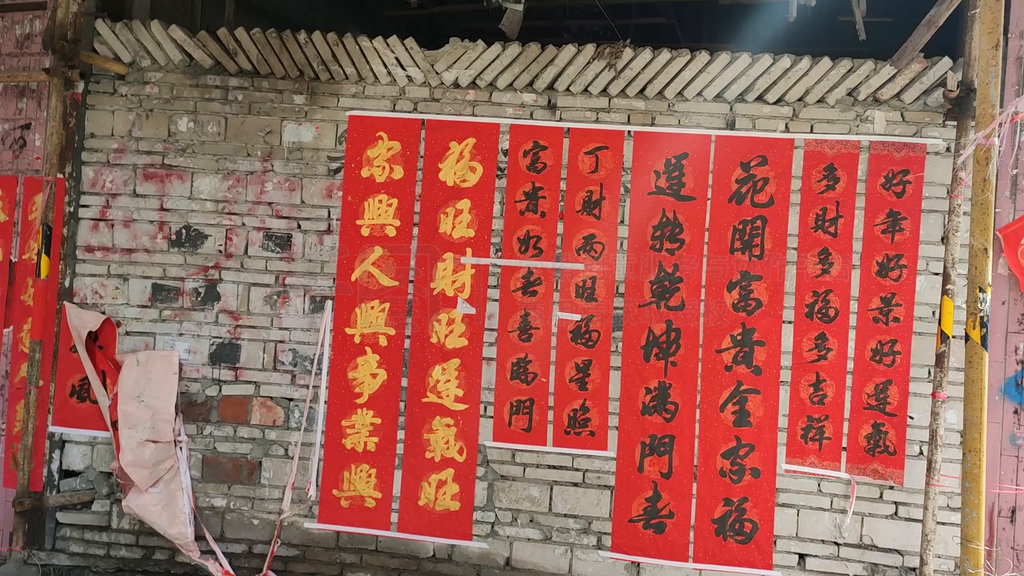 好年好景好運氣
多財多福多吉祥
花開富貴全家福
運轉乾坤滿門春
丁財兩旺福星照
富貴如春喜臨門
福旺財旺運氣旺
家興人興事業興